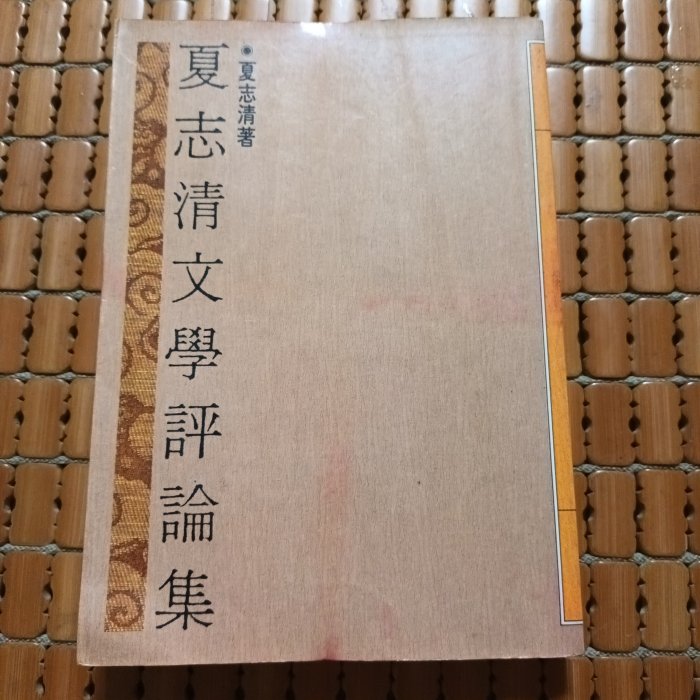 夏志清著
夏志清文學評論集